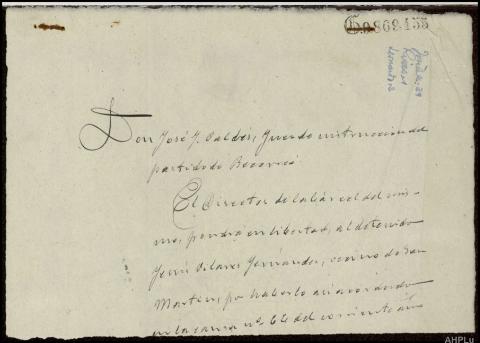 G.0869,455
Don José J. Valdés, Juez de instruccion del
partido de Becerreá
El Director de la Cárcel del mis-
mo, pondra en libertad, al detenido
Jesús Vilares Fernández, vecino de San
Martin, por haberlo asi acordado
en la causa nº 66 del corriente año
AHPLu